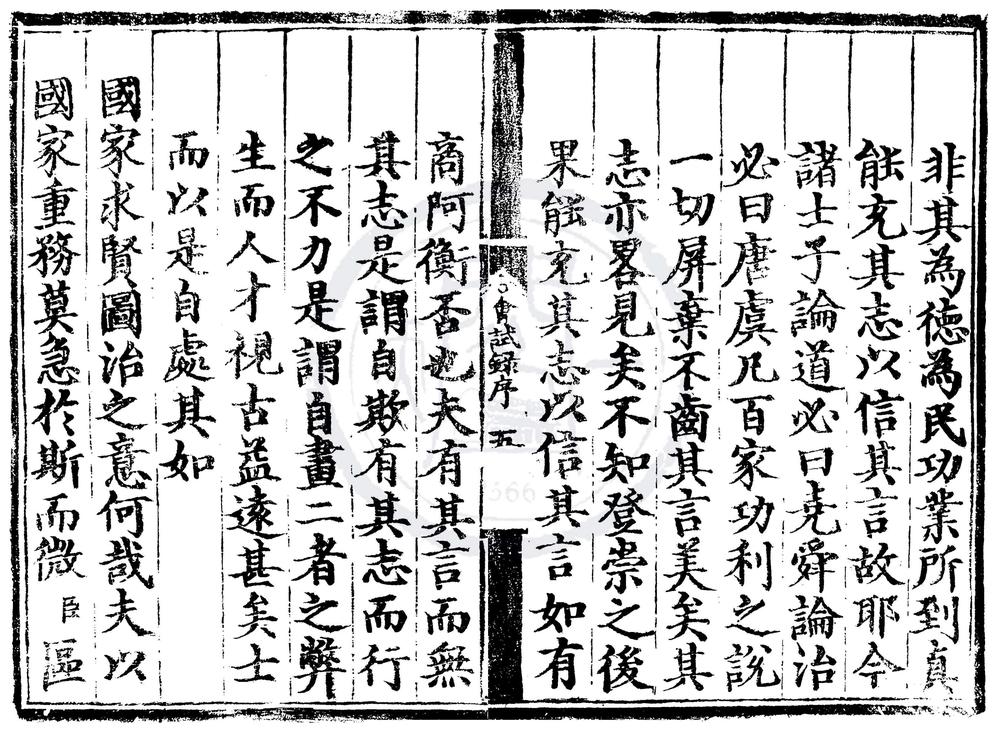 非其為德為民功業所到真
能充其志以信其言故耶今
諸士子論道必曰堯舜論治
必曰唐虞凡百家功利之說
一切屏棄不齒其言美矣其
志亦畧見矣不知登崇之後
果能充其志以信其言如有
會試錄序 五
商阿衡否也夫有其言而無
其志是謂自欺有其志而行
之不力是謂自畫二者之弊
生而人才視古益遠甚矣士
而以是自處其如
國家求賢圖治之意何哉夫以
國家重務莫急於斯而微臣區